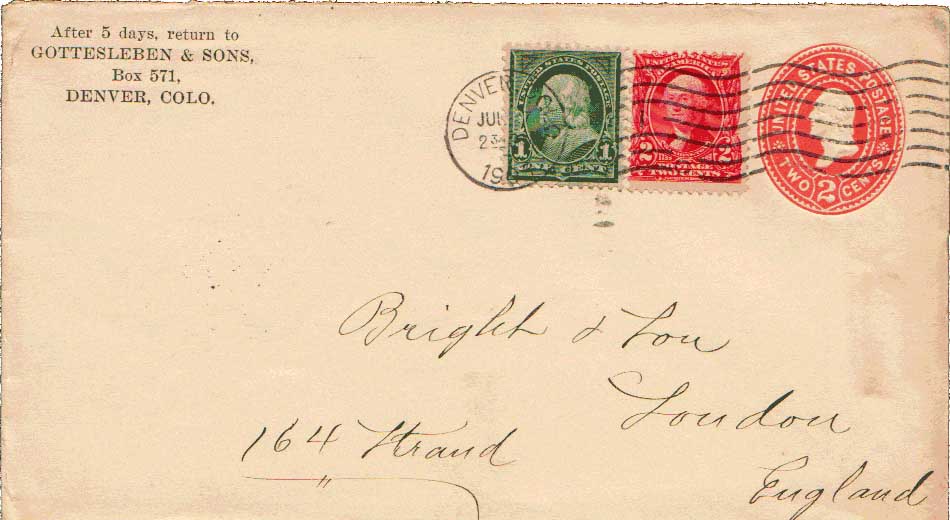 After 5 days, return to
GOTTESLEBEN & SONS,
Box 571,
DENVER, COLO.
DENVER
JUL
23
19
UNITED STATES POSTAGE
1 1
ONE CENT
UNITED STATES
OF AMERICA
2 2
POSTAGE
TWO CENTS
UNITED STATES POSTAGE
TWO 2 CENTS
Bright & Son
London
164 Strand
England